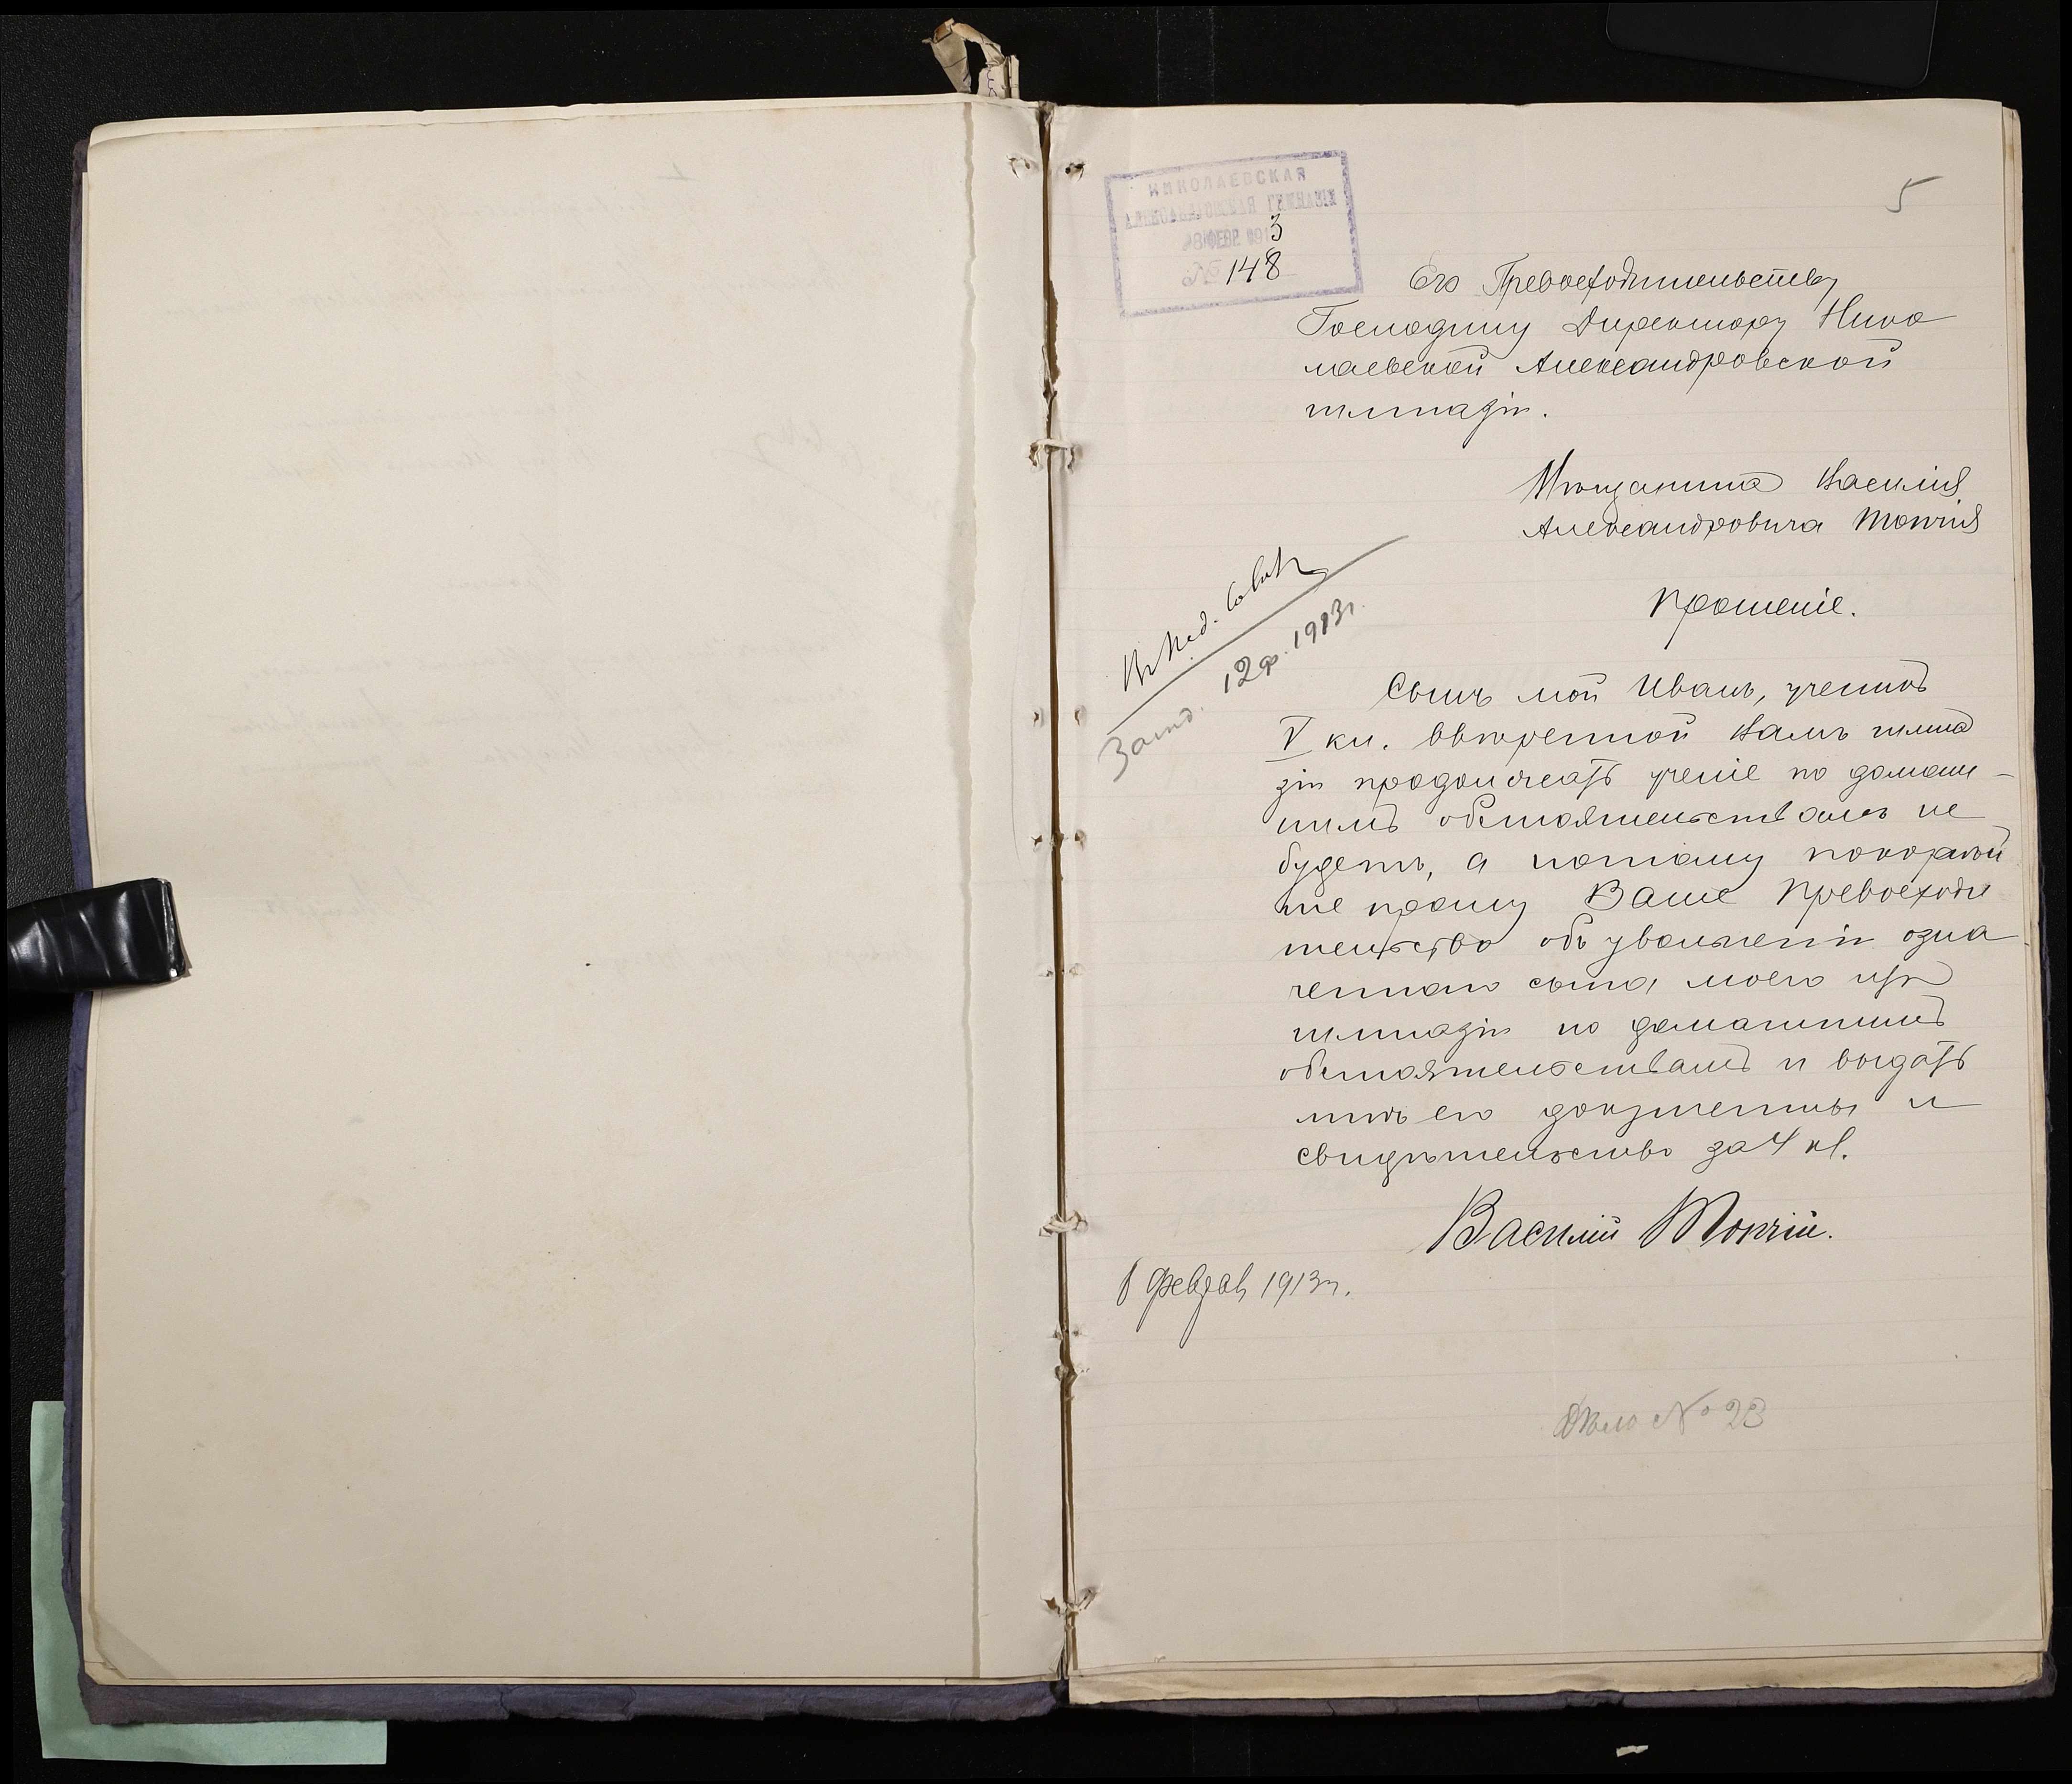 5
НИКОЛАЕВСКАЯ
АЛЕКСАНДРОВСКАЯ ГИМНАЗІЯ
8 ФЕВР. 1913
№ 148
Его Превосходительству
Господину Директору Нико
лаевской Александровской
гимназіи.
Мѣщанина Василія
Александровича Топчія
Прошеніе.
Въ Пед. Совѣтъ
12 ф. 1913 г.
Сынъ мой Иванъ, ученикъ
V кл. ввѣренной Вамъ гимна
зіи продолжать ученіе по домаш-
нимъ обстоятельствамъ не
будетъ, а потому покорнѣй
ше прошу Ваше Превосходи
тельство объ увольненіи озна
ченнаго сына моего изъ
гимназіи по домашнимъ
обстоятельствамъ и выдать
мнѣ его документы и
свидѣтельство за 4 кл.
Василій Топчій.
8 февраля 1913 г.
Дѣло № 23